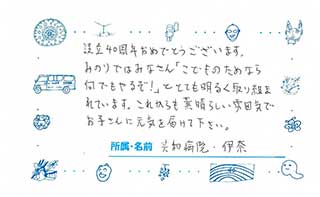 設立40周年おめでとうございます。
みのりではみなさん「こどものためなら
何でもやるぞ!」ととても明るく取り組ま
れています。これからも素晴らしい雰囲気で
お子さんに元気を届けて下さい。
所属・名前 美和病院・伊奈